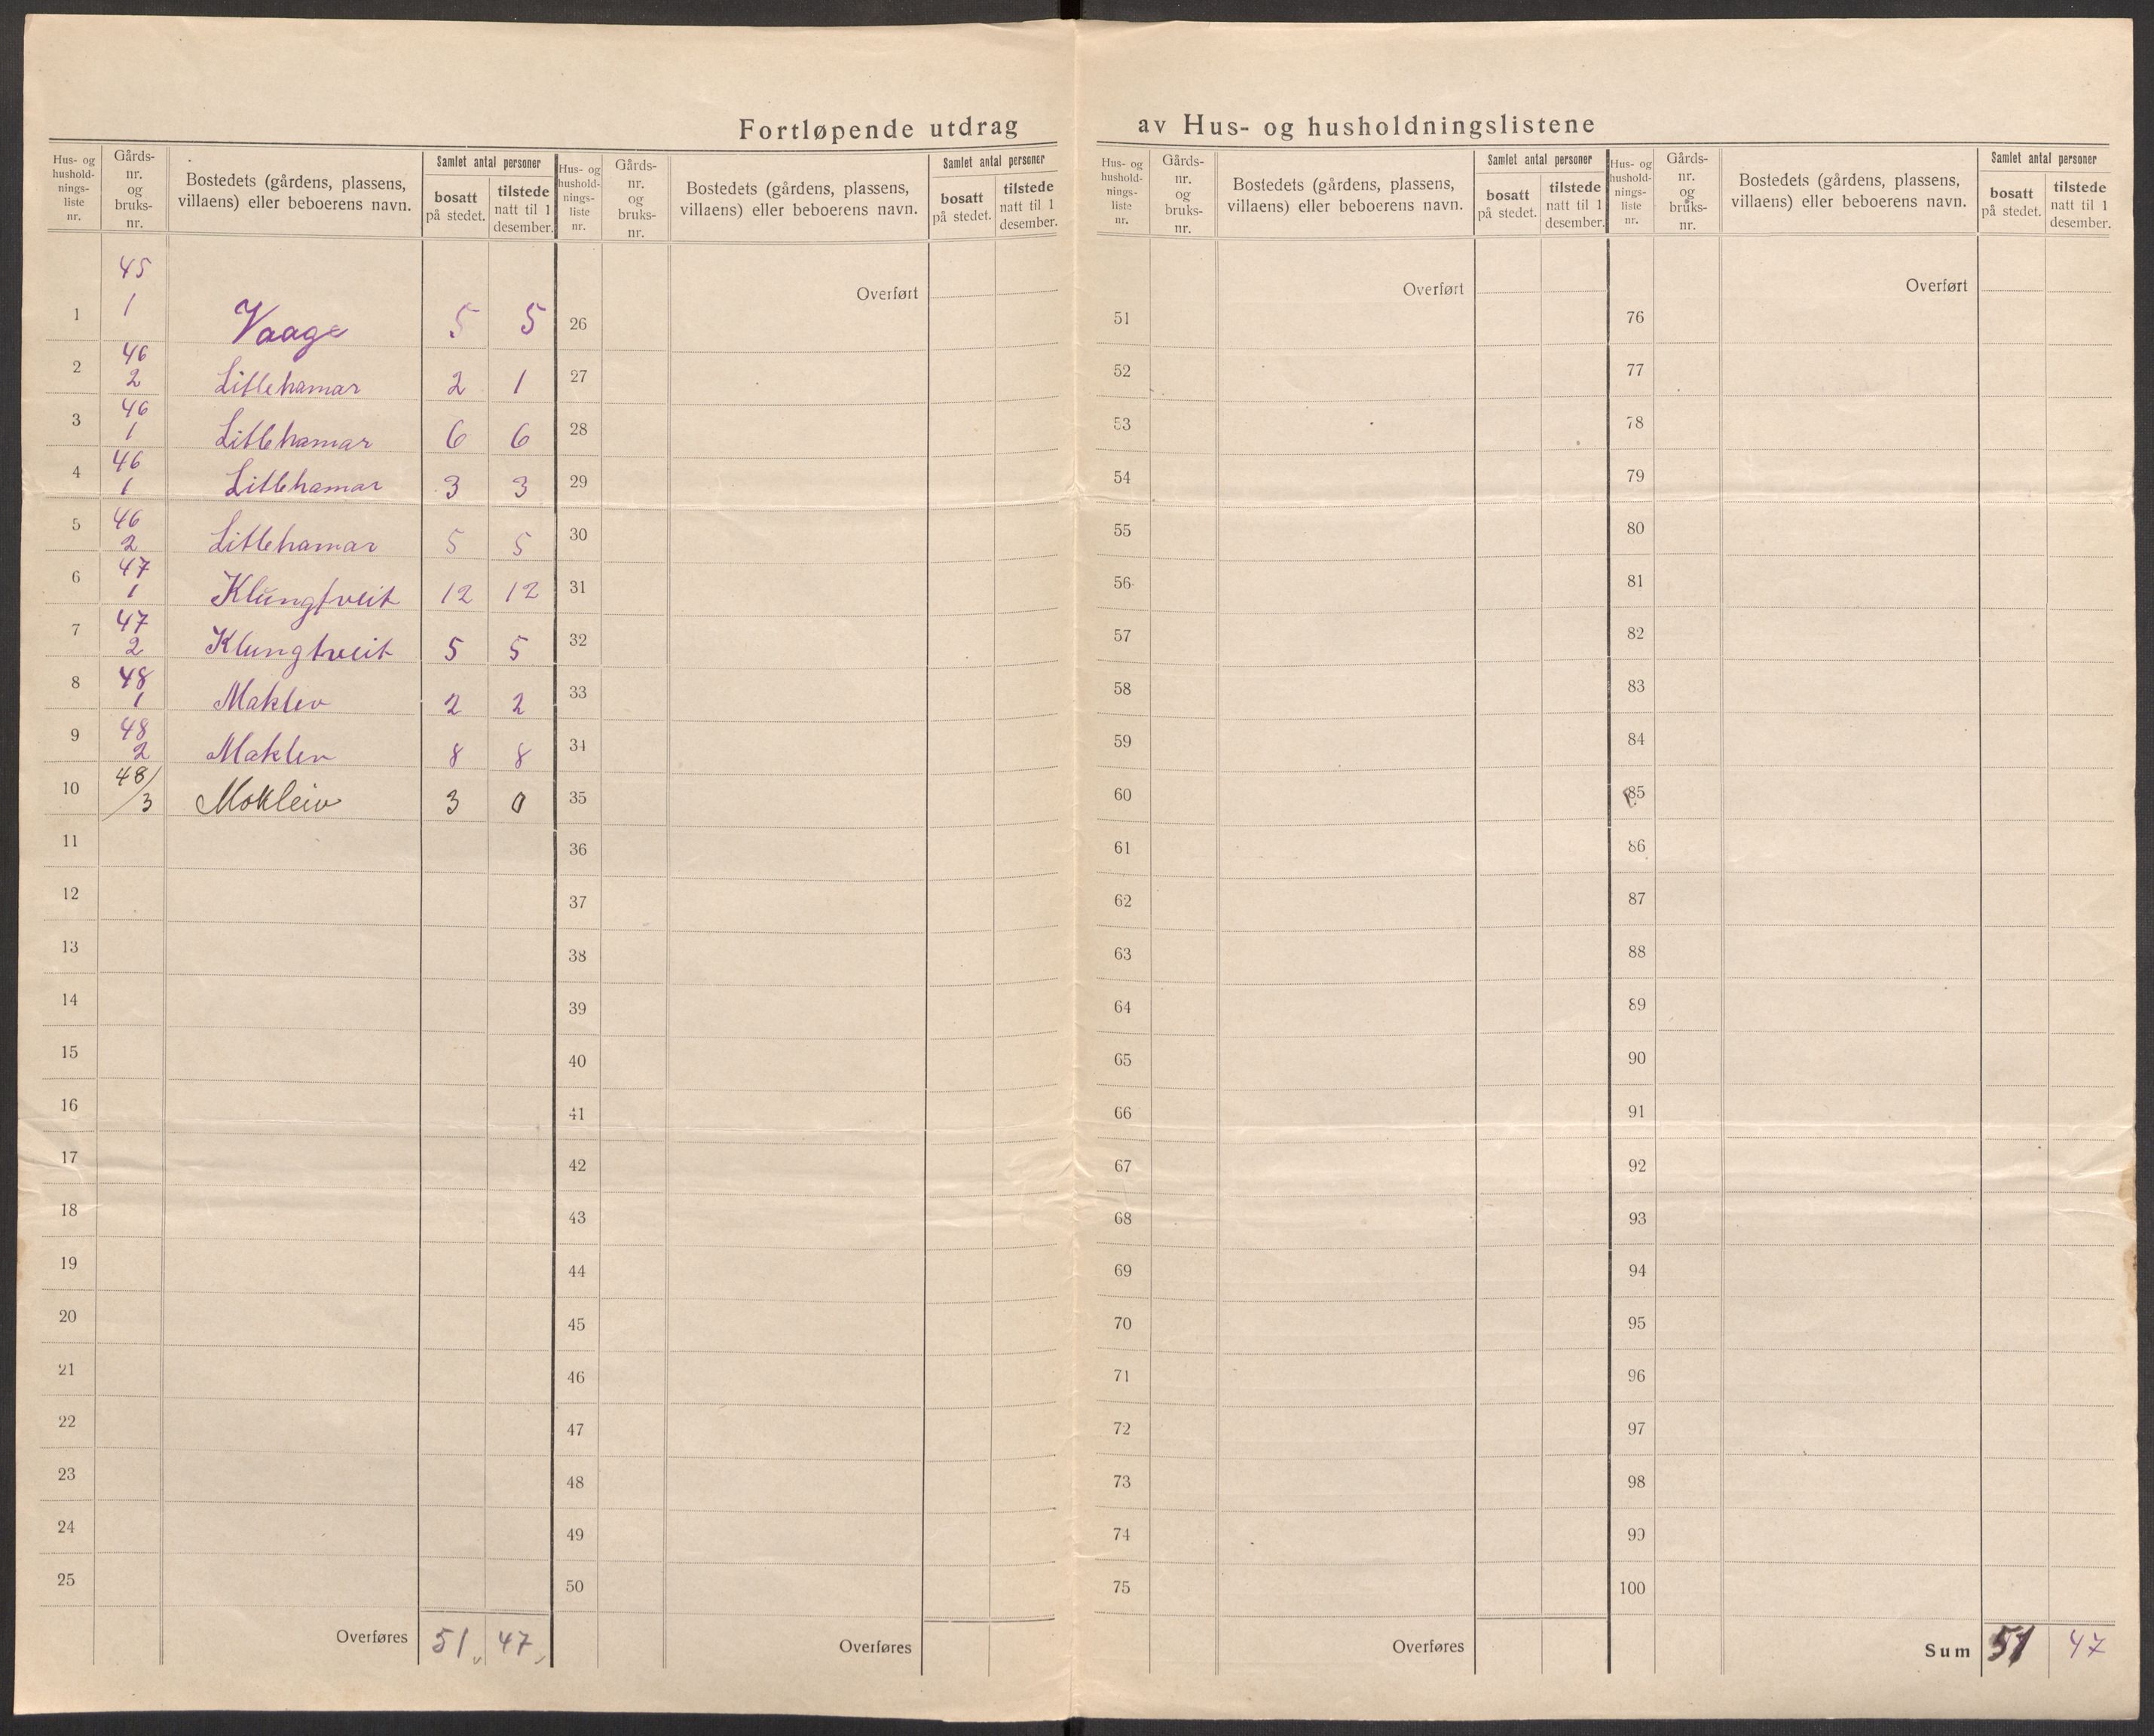 Fortløpende utdrag av Hus- og husholdningslistene
Hus- og hushold-nings-liste nr. Gårds-nr. og bruks-nr. Bostedets (gårdens, plassens, villaens) eller beboerens navn. Samlet antal personer bosatt på stedet. tilstede natt til 1 desember.
1 45 1 Vaage 5 5
2 46 2 Litlehamar 2 1
3 46 1 Litlehamar 6 6
4 46 1 Litlehamar 3 3
5 46 2 Litlehamar 5 5
6 47 1 Klungtveit 12 12
7 47 2 Klungtveit 5 5
8 48 1 Maklev 2 2
9 48 2 Maklev 8 8
10 48/3 Mokleiv 3 0
11
12
13
14
15
16
17
18
19
20
21
22
23
24
25
Overføres 51 47
Hus- og hushold-nings-liste nr. Gårds-nr. og bruks-nr. Bostedets (gårdens, plassens, villaens) eller beboerens navn. Samlet antal personer bosatt på stedet. tilstede natt til 1 desember.
Overført
26
27
28
29
30
31
32
33
34
35
36
37
38
39
40
41
42
43
44
45
46
47
48
49
50
Overføres
Hus- og hushold-nings-liste nr. Gårds-nr. og bruks-nr. Bostedets (gårdens, plassens, villaens) eller beboerens navn. Samlet antal personer bosatt på stedet. tilstede natt til 1 desember.
Overført
51
52
53
54
55
56
57
58
59
60
61
62
63
64
65
66
67
68
69
70
71
72
73
74
75
Overføres
Hus- og hushold-nings-liste nr. Gårds-nr. og bruks-nr. Bostedets (gårdens, plassens, villaens) eller beboerens navn. Samlet antal personer bosatt på stedet. tilstede natt til 1 desember.
Overført
76
77
78
79
80
81
82
83
84
85
86
87
88
89
90
91
92
93
94
95
96
97
98
99
100
Sum 51 47